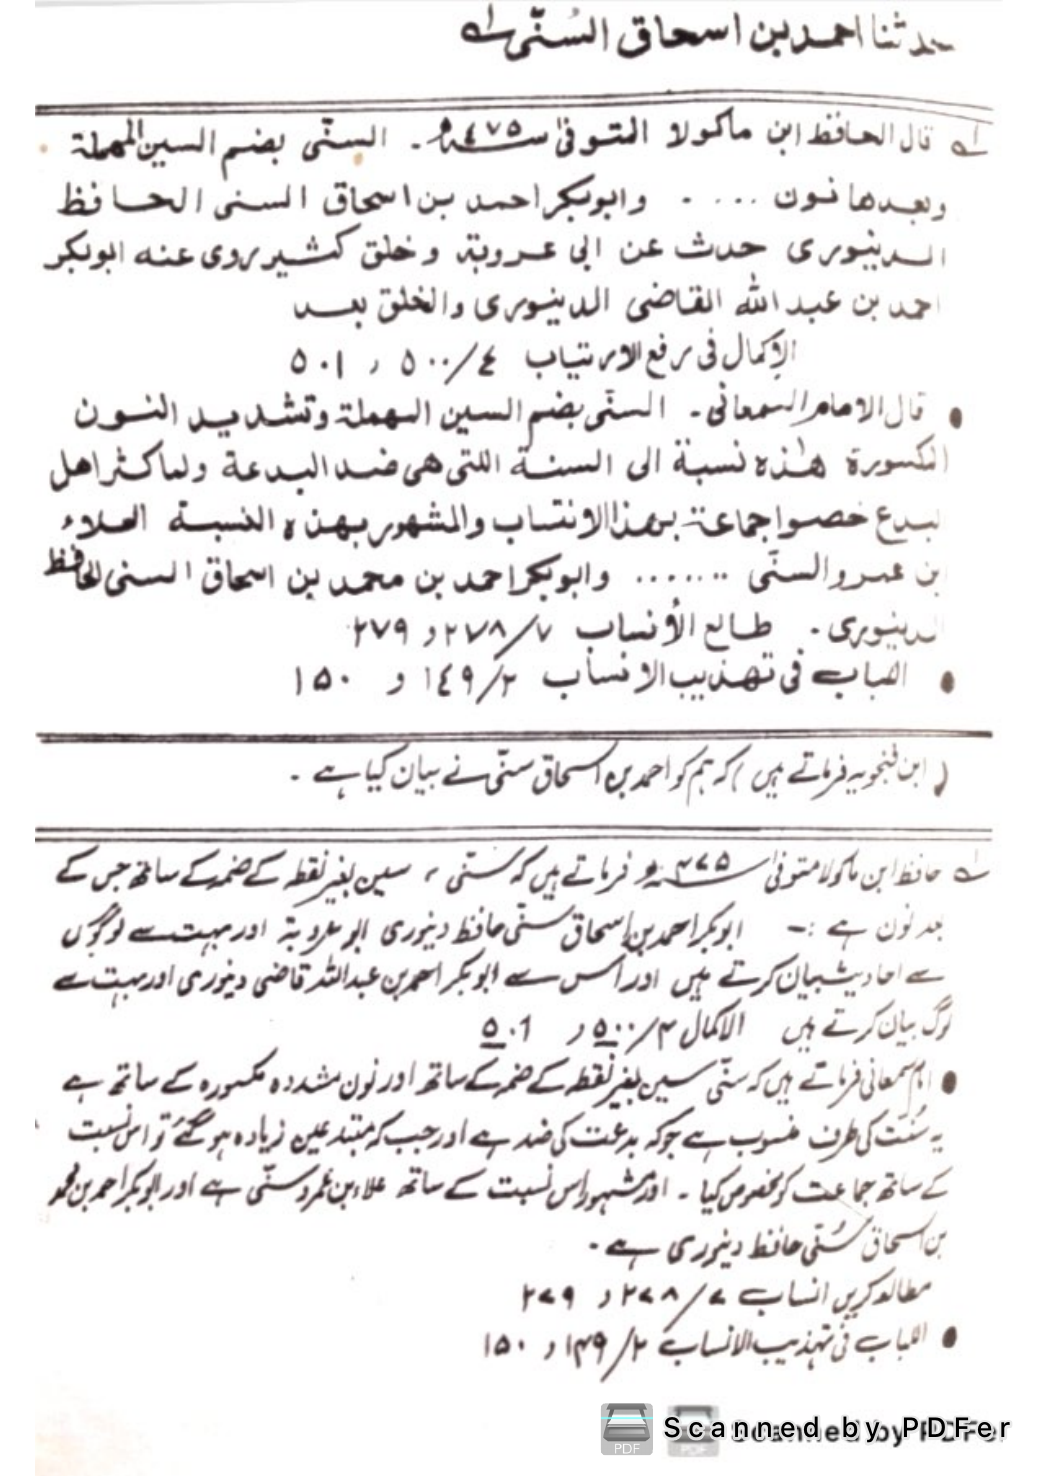 حدثنا احمد بن اسحاق السُنّی لے
لے قال الحافظ ابن ماکولا المتوفیٰ سنہ ٤٧٥ھ ۔ السنّی بضم السین المهملة
وبعدها نون .... ۔ وابوبکر احمد بن اسحاق السنی الحافظ
الدینوری حدث عن ابی عروبة وخلق کثیر روی عنه ابوبکر
احمد بن عبد الله القاضی الدینوری والخلق بعد
الإکمال فی رفع الارتیاب ٤/٥٠٠ ، ٥٠١
● قال الامام السمعانی ۔ السنّی بضم السین المهملة وتشدید النون
المکسورة هٰذه نسبة الی السنة اللتی هی ضد البدعة ولما کثر اهل
البدع خصوا جماعة بهذا الانتساب والمشهور بهذه النسبة العلاء
ابن عمرو السنّی ....... وابوبکر احمد بن محمد بن اسحاق السنی الحافظ
الدینوری ۔ طالع الأنساب ٧/٢٧٨ و ٢٧٩
● اللباب فی تهذیب الانساب ٢/١٤٩ و ١٥٠
( ابن فنجویہ فرماتے ہیں ) کہ ہم کو احمد بن اسحاق سنّی نے بیان کیا ہے ۔
لے حافظ ابن ماکولا متوفیٰ سنہ ۴۷۵ھ فرماتے ہیں کہ سنّی ، سین بغیر نقطہ کے ضمہ کے ساتھ جس کے
بعد نون ہے :۔ ابوبکر احمد بن اسحاق سنّی حافظ دینوری ابو عروبة اور بہت سے لوگوں
سے احادیث بیان کرتے ہیں اور اس سے ابوبکر احمد بن عبداللہ قاضی دینوری اور بہت سے
لوگ بیان کرتے ہیں الاکمال ۴/۵۰۰ و ۵۰۱
● امام سمعانی فرماتے ہیں کہ سنّی سین بغیر نقطہ کے ضمہ کے ساتھ اور نون مشددہ مکسورہ کے ساتھ ہے
یہ سُنّت کی طرف منسوب ہے جو کہ بدعت کی ضد ہے اور جب کہ مبتدعین زیادہ ہو گئے تو اس نسبت
کے ساتھ جماعت کو مخصوص کیا ۔ اور مشہور اس نسبت کے ساتھ علاء بن عمرو سنّی ہے اور ابوبکر احمد بن محمد
بن اسحاق سُنّی حافظ دینوری ہے ۔
مطالعہ کریں انساب ۷/۲۷۸ و ۲۷۹
● اللباب فی تہذیب الانساب ۲/۱۴۹ و ۱۵۰
Scanned by PDFer
Scanned by PDFer
PDF
PDF